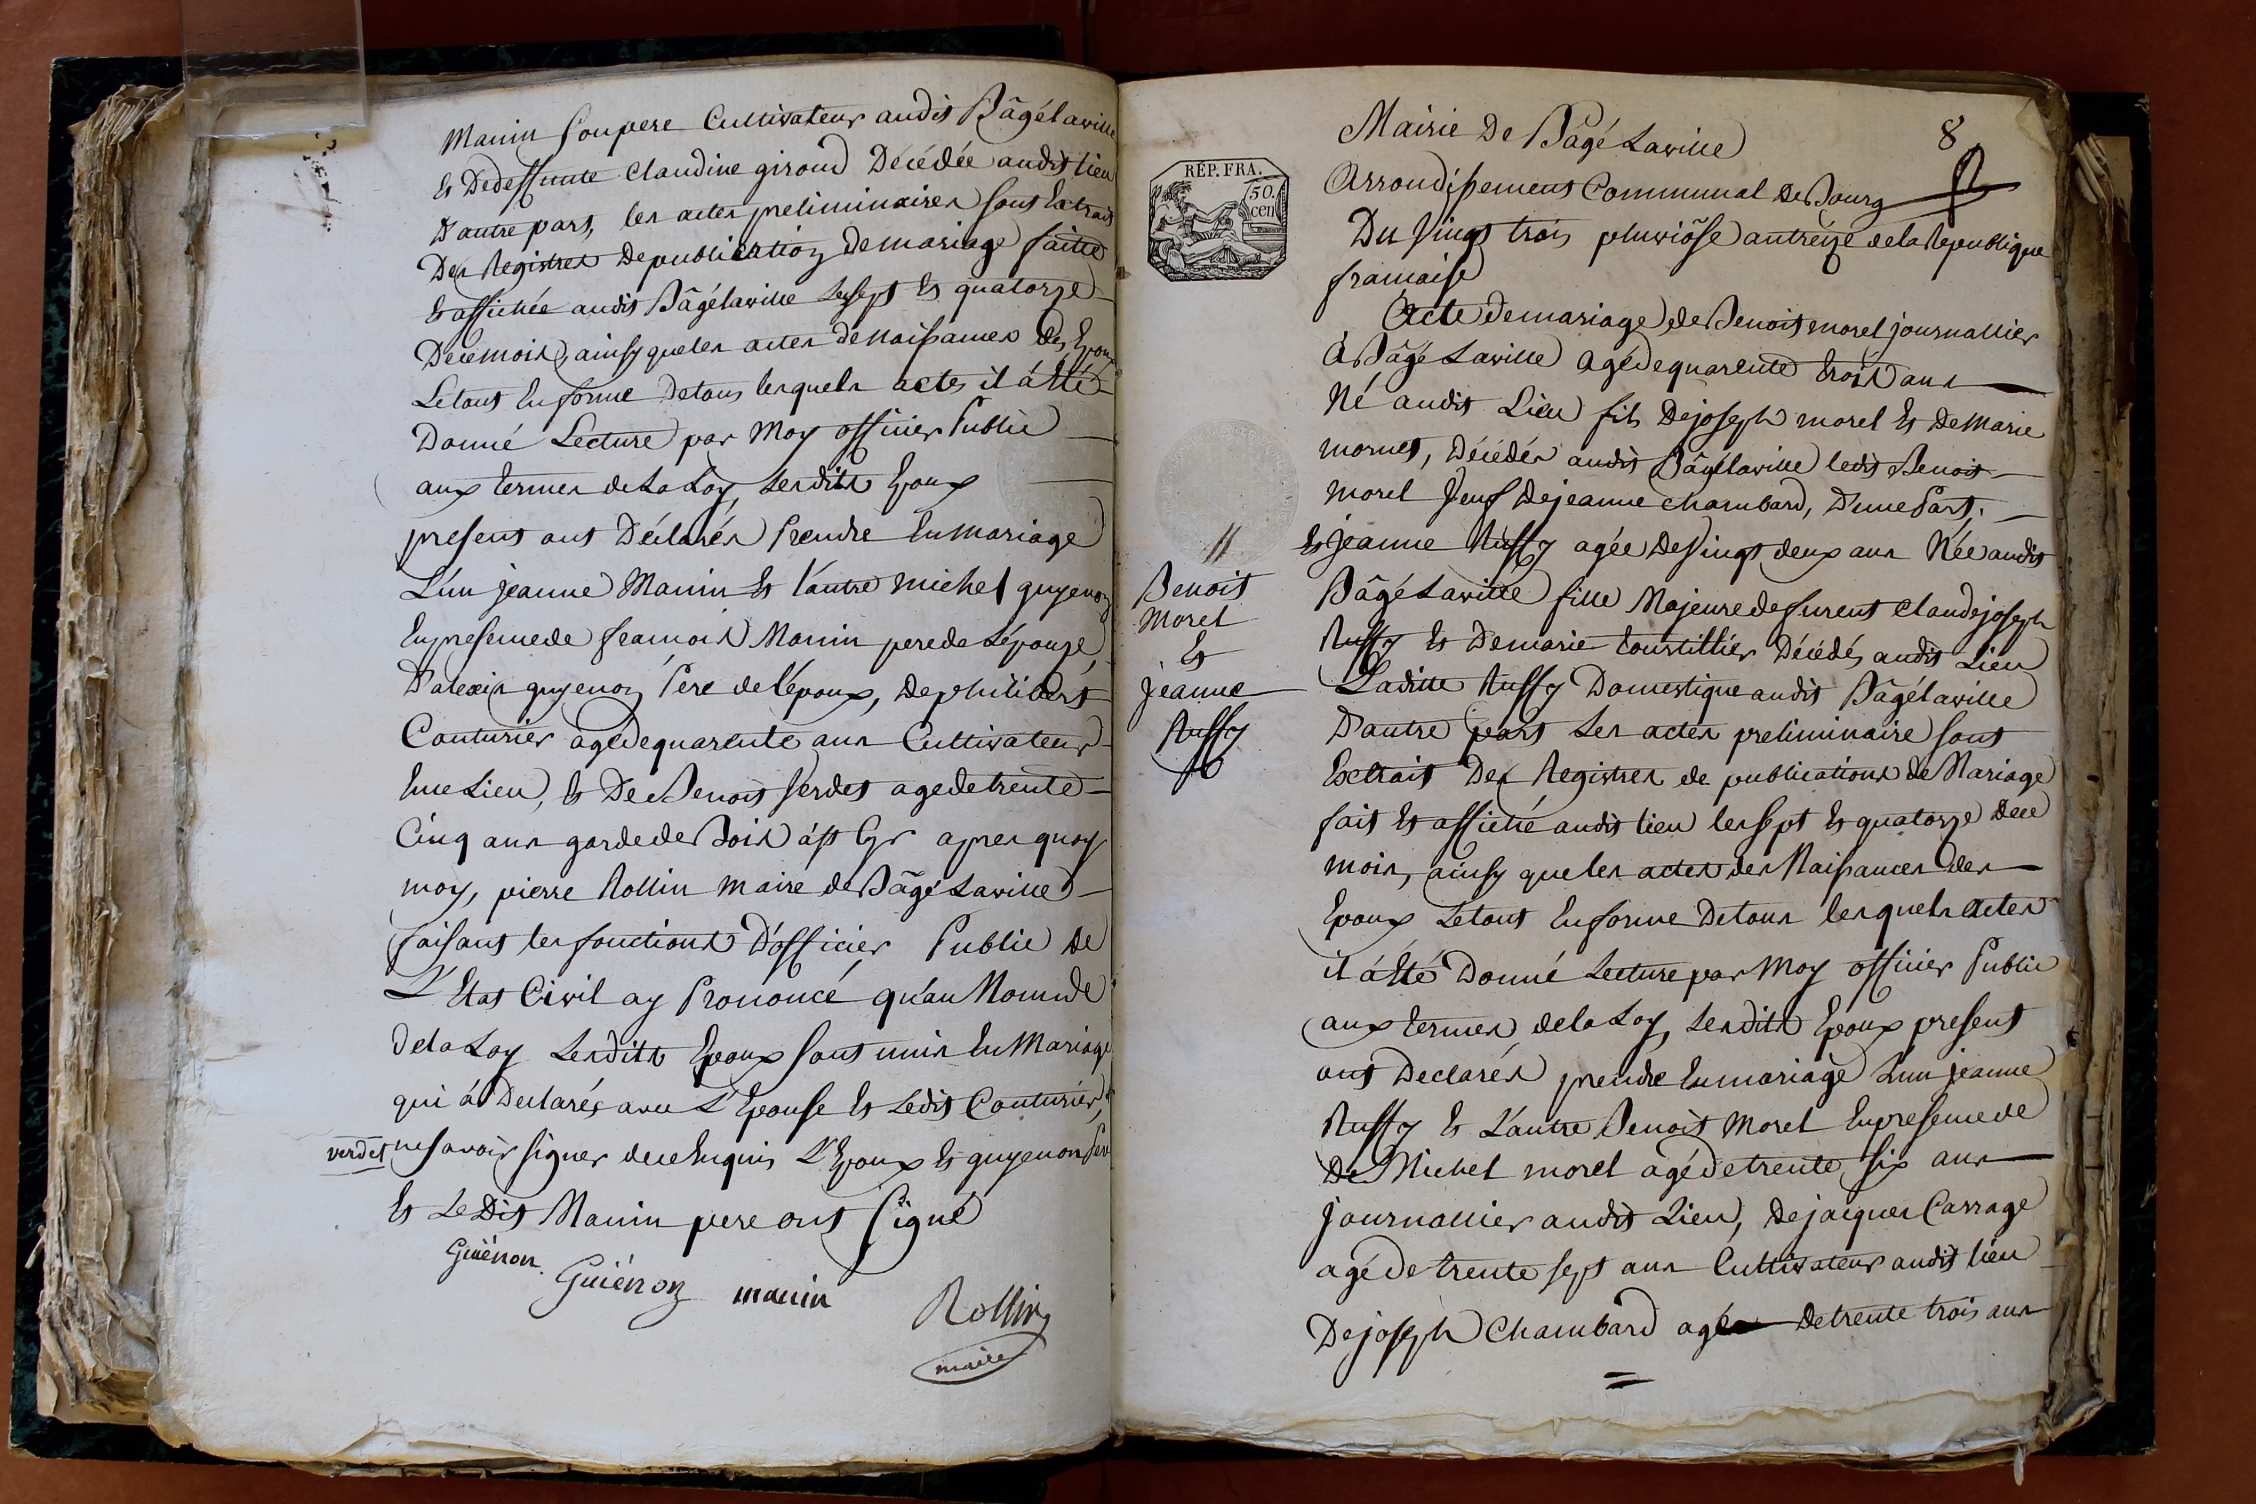 Manin Son pere Cultivateur audit Bâgé laville
et De deffunte Claudine giroud Décédée audit lieu
D'autre part, les actes preliminaires sont Extrait
Des Registres De publication de mariage faitte
et affichée audit Bâgé laville Le sept et quatorze
De ce mois, ainsy que les actes de naissances des Epoux
Le tout En forme De tous lesquels actes il á Eté
Donné Lecture par Moy officier Public
aux termes de La Loy, Lesdits Epoux
present ont Déclarés Prendre En mariage
L'un jeanne Manin et l'autre michel guyenon
En presence de francois Manin pere de L'épouze,
D'alexis guyenon Pere de l'époux, de philibert
Couturier agé de quarente ans Cultivateur
En ce Lieu, et De Benoit Verdet agé de trente
Cinq ans garde de Bois á St Cyr apres quoy
moy, pierre Rollin Maire de Bâgé Laville
faisant les fonctions D'officier Public de
L'Etat Civil ay Prononcé qu'au Nom de
de la Loy Lesdits Epoux sont unis En Mariage
qui á Declarés avec L'Epouse et Ledit Couturier,
verdet ne savoir signer de ce Enquis L'Epoux et guyenon Per
et Le Dit Manin pere ont Signé
Guiénon
Guiénon manin
Rollin
maire
Mairie De Bâgé Laville
8
Arrondissement Communal De Bourg
RÉP. FRA.
50.
cen
Du Vingt trois pluviôse an treize de la Republique
francaise
Acte de mariage de Benoit morel journallier
á Bâgé Laville agé de quarente trois ans
Né audit Lieu fils De joseph morel et De Marie
mornet, Décédés audit Bâgé laville ledit Benoit
morel Veuf De jeanne chambard, D'une Part,
et jeanne Ruffy agée De Vingt deux ans Née audit
Bâgé Laville fille Majeure de furent Claude joseph
Ruffy et De marie tourtillier Décédés audit Lieu
Laditte Ruffy Domestique audit Bâgé laville
D'autre part Les actes preliminaire sont
Extrait Des Registres de publications de Mariage
fait et affiché audit lieu les sept et quatorze De ce
mois, ainsy que les actes des Naissances des
Epoux Le tout En forme De tous lesquels actes
il á Eté Donné Lecture par Moy officier Public
aux termes de la Loy, Lesdits Epoux present
ont Declarés prendre En mariage L'un jeanne
Ruffy et L'autre Benoit Morel En presence de
De Michel morel agé de trente six ans
journallier audit Lieu, De jacques Carrage
agé de trente sept ans Cultivateur audit lieu
De joseph Chambard agé De trente trois ans
Benoit
Morel
Et
jeanne
Ruffy